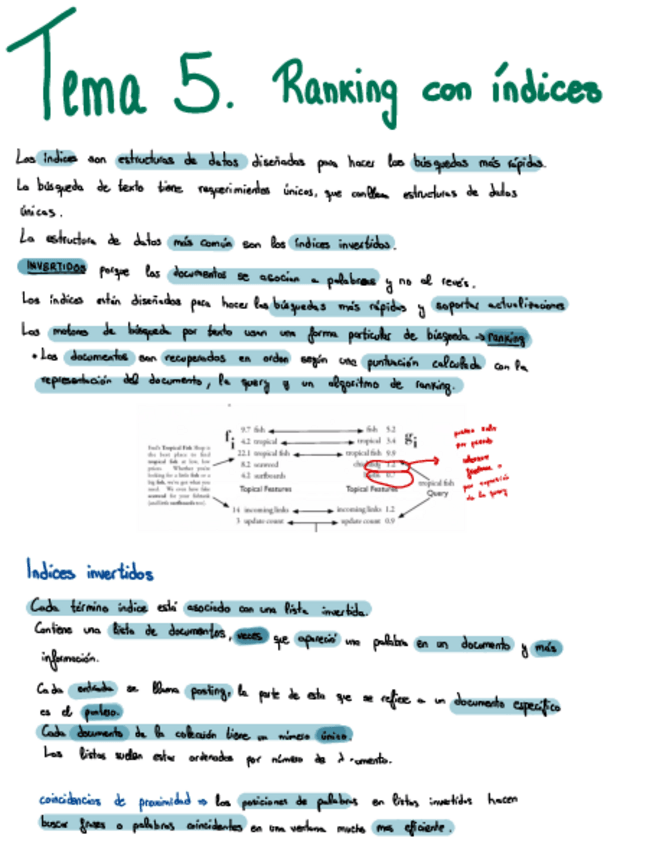 Tema 5. Ranking con índices
Los índices son estructuras de datos diseñadas para hacer las búsquedas más rápidas.
La búsqueda de texto tiene requerimientos únicos, que conlleva estructuras de datos
únicas.
La estructura de datos más común son los índices invertidos.
INVERTIDOS porque los documentos se asocian a palabras y no al revés.
Los índices están diseñados para hacer las búsquedas más rápidas y soportar actualizaciones
Los motores de búsqueda por texto usan una forma particular de búsqueda → ranking
• Los documentos son recuperados en orden según una puntuación calculada con la
representación del documento, la query y un algoritmo de ranking.
fi
9.7 fish
4.2 tropical
22.1 tropical fish
8.2 seaweed
4.2 surfboards
Topical Features
14 incoming links
3 update count
fish 5.2
tropical 3.4
tropical fish 9.9
Topical Features
incoming links 1.2
update count 0.9
gi
tropical fish
Query
Fred's Tropical Fish Shop is
the best place to find
tropical fish at low, low
prices. Whether you're
looking for a little fish or a
big fish, we've got what you
need. We even have fake
seaweed for your fishtank
(and little surfboards too).
de la query
Indices invertidos
Cada término índice está asociado con una lista invertida.
Contiene una lista de documentos, veces que apareció una palabra en un documento y más
información.
Cada entrada se llama posting, la parte de esta que se refiere a un documento específico
es el puntero.
Cada documento de la colección tiene un número único.
Las listas suelen estar ordenadas por número de
coincidencias de proximidad ⇒ las posiciones de palabras en listas invertidas hacen
buscar frases o palabras coincidentes en una ventana mucho más eficiente.